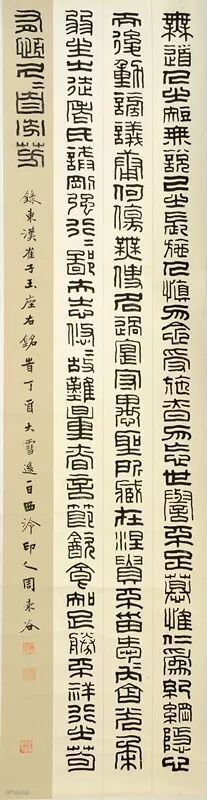 無道人之短無說己之長施人慎勿念受施慎勿忘世譽不足慕惟仁為紀綱隱心
而後動謗議庸何傷無使名過實守愚聖所臧在涅貴不緇曖曖內含光柔
弱生之徒老氏誡剛強行行鄙夫志悠悠故難量慎言節飲食知足勝不祥行之苟
有恆久久自芬芳
錄東漢崔子玉座右銘旹丁酉大雪一日西泠印人周東谷